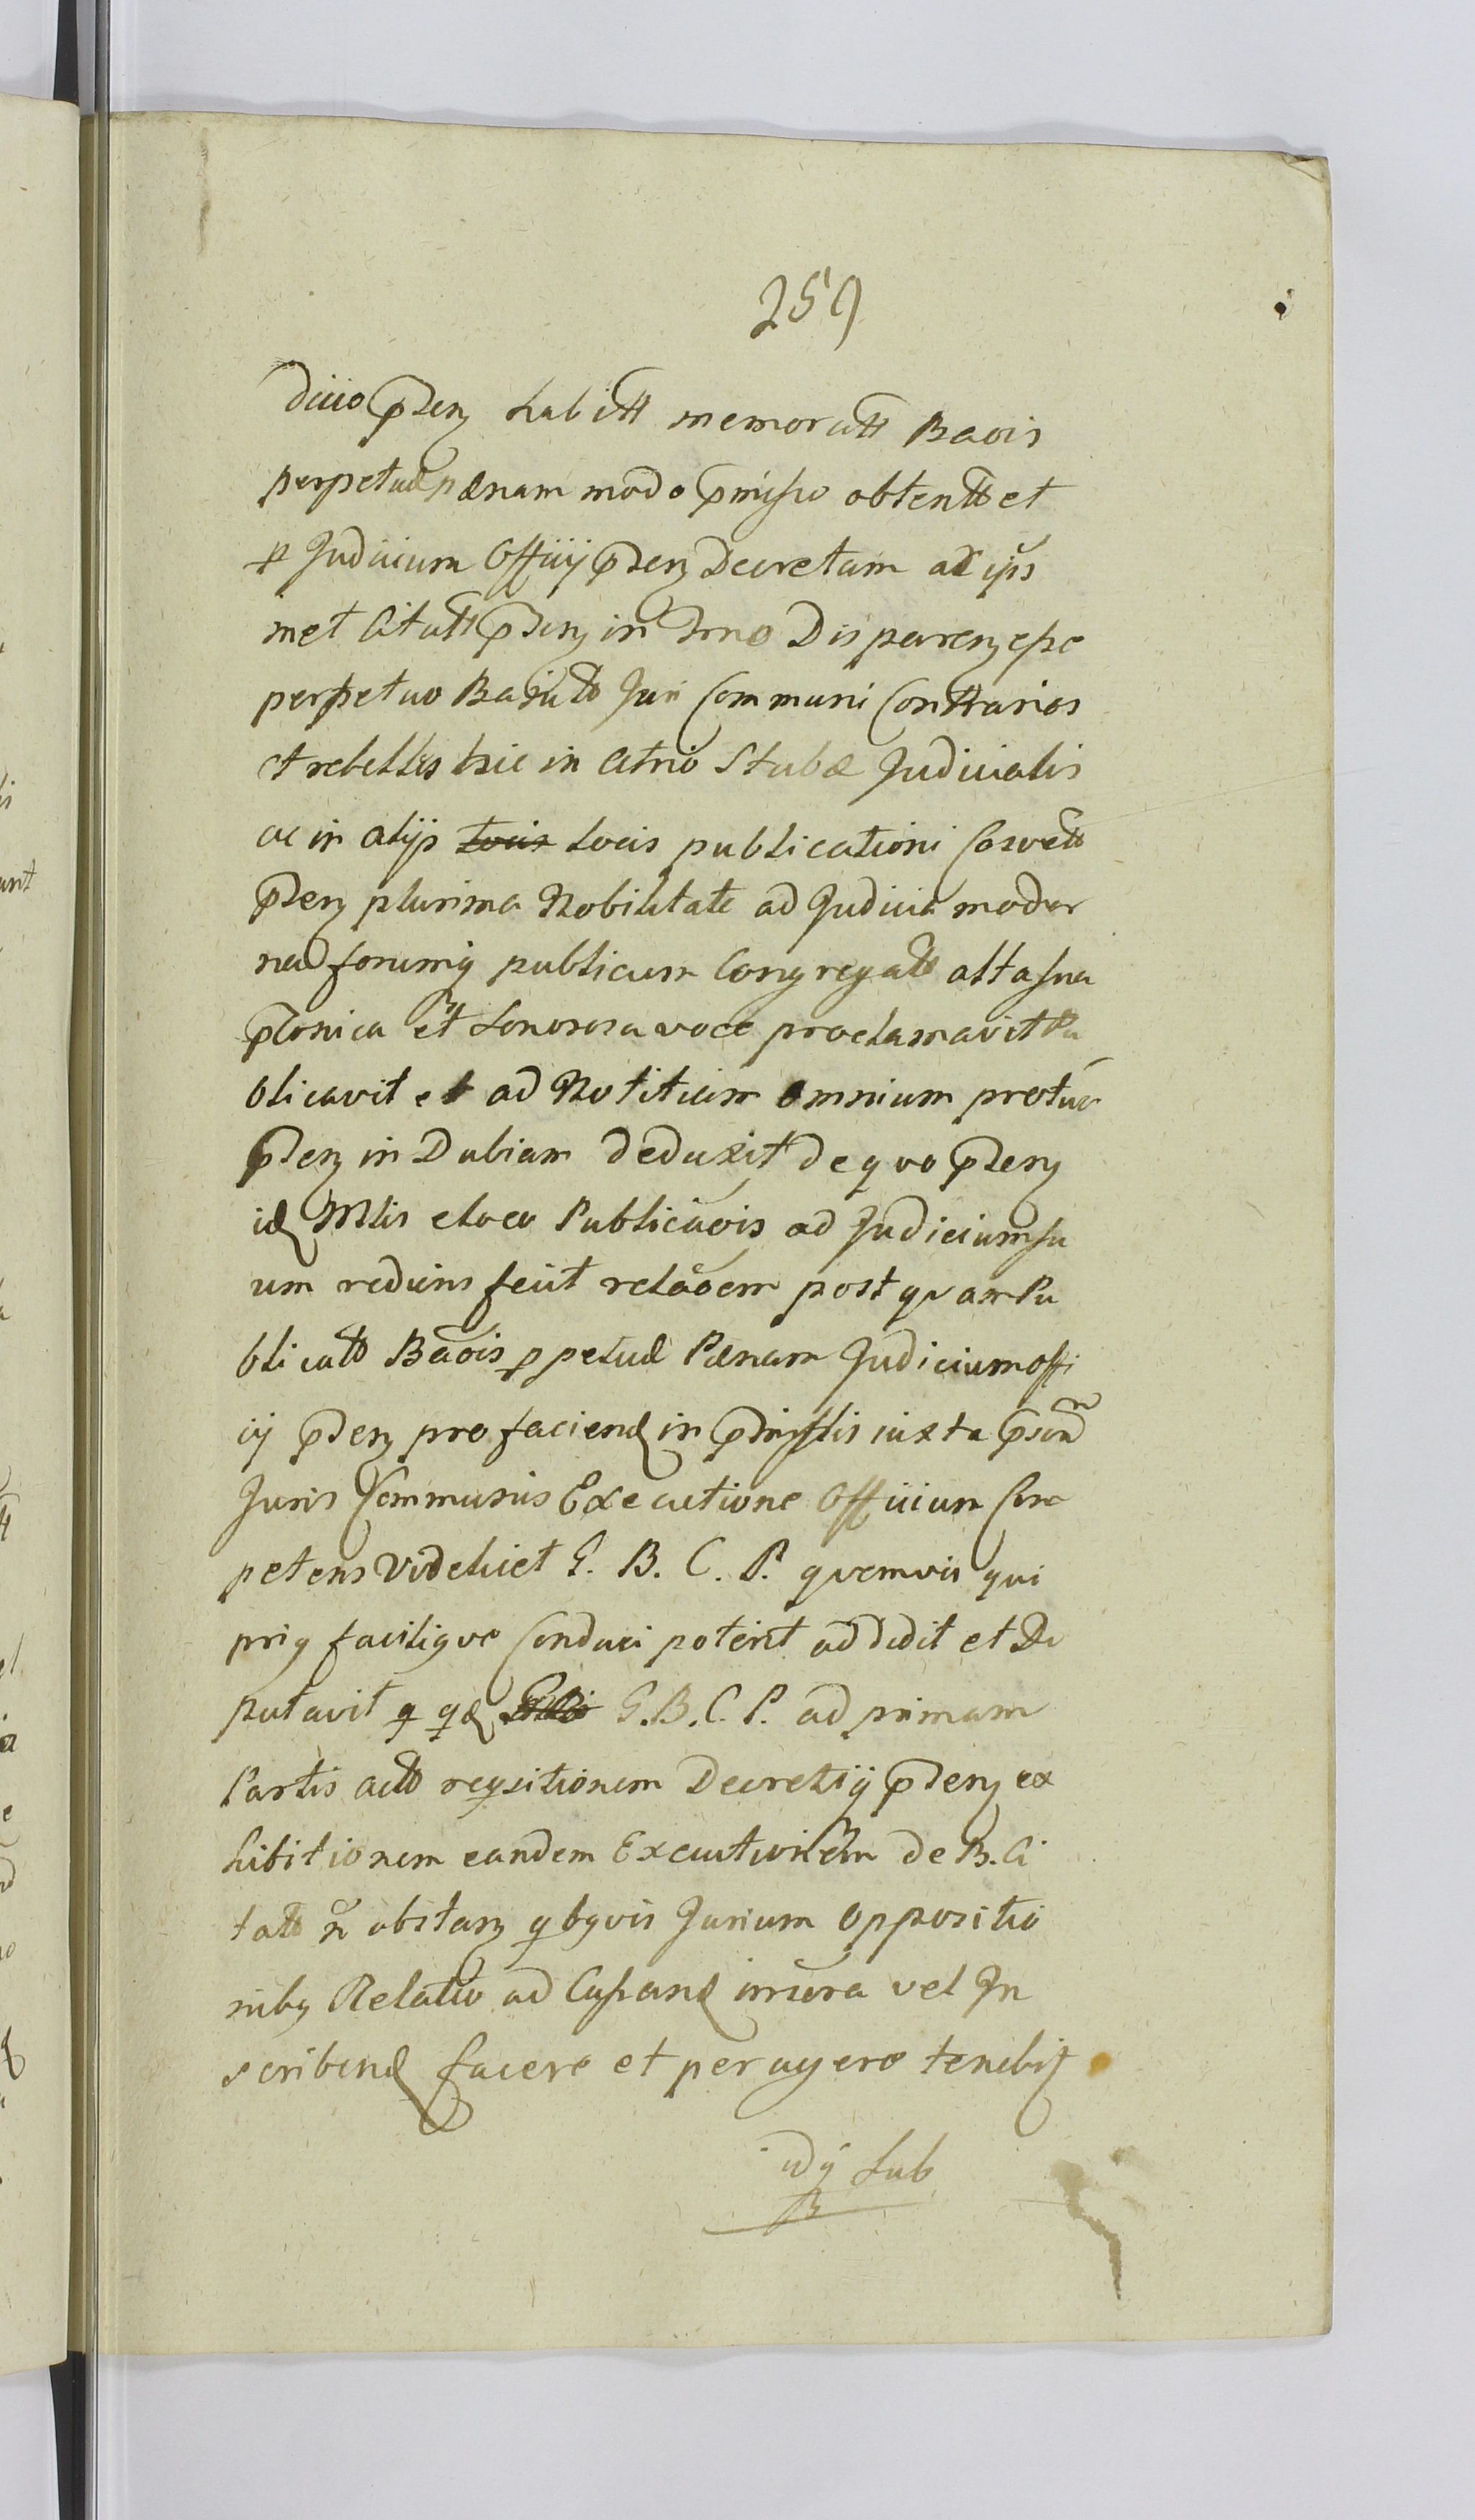 259
dicio pnten habitt memoratt Baois
perpetuæ pænam modo pmisso obtentt et
p Judicium Officij pnten Decretam ad ips
met Citatt pnten in Trno Disparen esse
perpetuo Banitt Juri Communi Contrarios
et rebelles hic in Atrio Stubæ Judicialis
ac in alijs locis locis publicationi Consvett
pnten plurima Nobilitate ad Judicia moder
na forumq publicum Congregatt alta sua
pconica et Sonorosa voce proclamavit Pu
blicavit et ad Notitiam omnium protunc
pnten in Dubiam deduxit de quo pnten
id Mlis eloco Publicaois ad Judicium su
um rediens fecit relaoem post quam Pu
blicatt Baois ppetuæ Pænam Judicium offi
cij pnten pro faciend in pmissis iuxta pscm
Juris Communis Executione Officium Com
petens Videlicet G. B. C. P. quemvis qui
priq facilique Conduci poterit addidit et De
putavit q qd G. B. C. P. ad primam
Partis actt reqsitionem Decretiq pnten ex
hibitionem eandem Executionem de B. Ci
tatt n obstan qbqvis Jurium oppositio
nibq Relatio ad Cassand irrora vel In
scribend facere et peragere tenebit